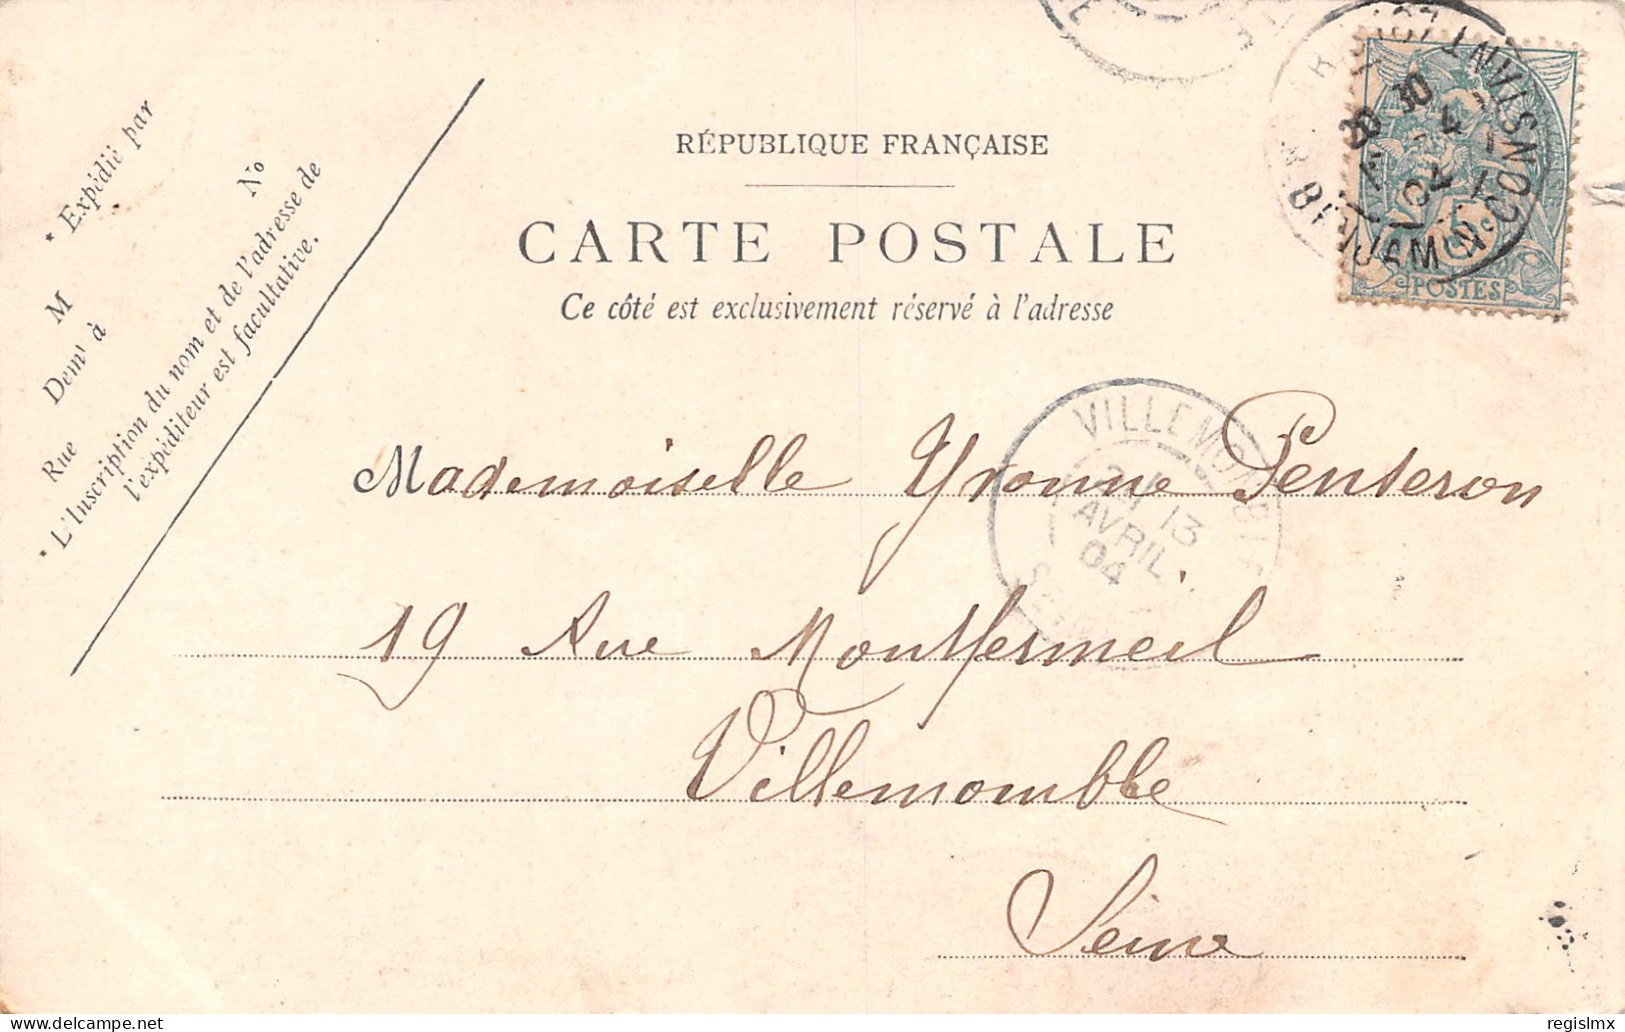 RÉPUBLIQUE FRANÇAISE
CARTE POSTALE
Ce côté est exclusivement réservé à l'adresse
* Expédié par
M
Demt à
Rue No
* L'Inscription du nom et de l'adresse de
l'expéditeur est facultative.
5c
POSTES
BENJAMIN CONSTANT
VILLEMOMBLE
13
AVRIL
04
Mademoiselle Yvonne Penteron
19 Rue Montfermeil
Villemombble
Seine
delcampe.net
regislmx